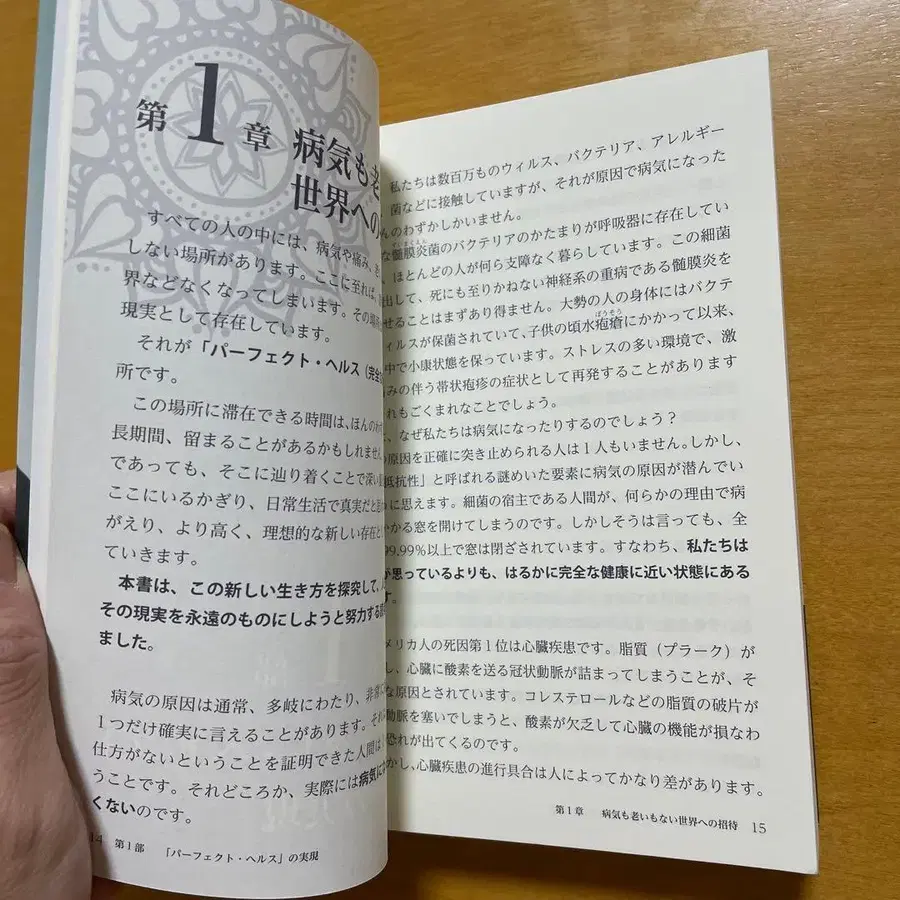 第1章 病気も老
世界への
すべての人の中には、病気や痛み、
しない場所があります。ここに至れば、
界などなくなってしまいます。その場所
現実として存在しています。
それが「パーフェクト・ヘルス(完全
所です。
この場所に滞在できる時間は、ほんのわず
長期間、留まることがあるかもしれません
であっても、そこに辿り着くことで深い
ここにいるかぎり、日常生活で真実だと
がえり、より高く、理想的な新しい存在
ていきます。
本書は、この新しい生き方を探究して、
その現実を永遠のものにしようと努力する
ました。
病気の原因は通常、多岐にわたり、非常
1つだけ確実に言えることがあります。それ
仕方がないということを証明できた人間は
うことです。それどころか、実際には病気に
くないのです。
14 第1部 「パーフェクト・ヘルス」の実現
私たちは数百万ものウィルス、バクテリア、アレルギー
菌などに接触していますが、それが原因で病気になった
んのわずかしかいません。
な髄膜炎菌のバクテリアのかたまりが呼吸器に存在してい
、ほとんどの人が何ら支障なく暮らしています。この細菌
出して、死にも至りかねない神経系の重病である髄膜炎を
せることはまずあり得ません。大勢の人の身体にはバクテ
ィルスが保菌されていて、子供の頃水疱瘡にかかって以来、
中で小康状態を保っています。ストレスの多い環境で、激
みの伴う帯状疱疹の症状として再発することがあります
れもごくまれなことでしょう。
、なぜ私たちは病気になったりするのでしょう?
の原因を正確に突き止められる人は1人もいません。しかし、
抵抗性」と呼ばれる謎めいた要素に病気の原因が潜んでい
に思えます。細菌の宿主である人間が、何らかの理由で病
かる窓を開けてしまうのです。しかしそうは言っても、全
99.99%以上で窓は閉ざされています。すなわち、私たちは
が思っているよりも、はるかに完全な健康に近い状態にある
す。
メリカ人の死因第1位は心臓疾患です。脂質(プラーク)が
し、心臓に酸素を送る冠状動脈が詰まってしまうことが、そ
な原因とされています。コレステロールなどの脂質の破片が
動脈を塞いでしまうと、酸素が欠乏して心臓の機能が損なわ
恐れが出てくるのです。
かし、心臓疾患の進行具合は人によってかなり差があります。
第1章 病気も老いもない世界への招待 15